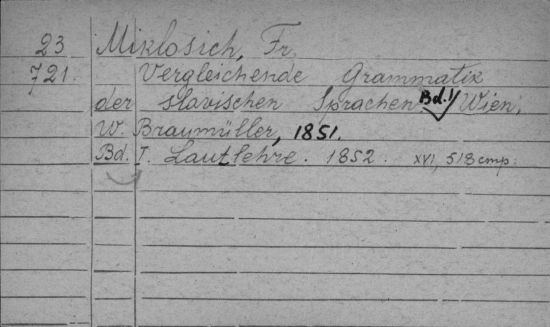 23 Miklosich, Fr.
721. Vergleichende Grammatik
der slavischen Sprachen Bd. 1/ Wien,
W. Braumüller, 1851.
Bd. I. Lautlehre. 1852. XVI, 518 стр.